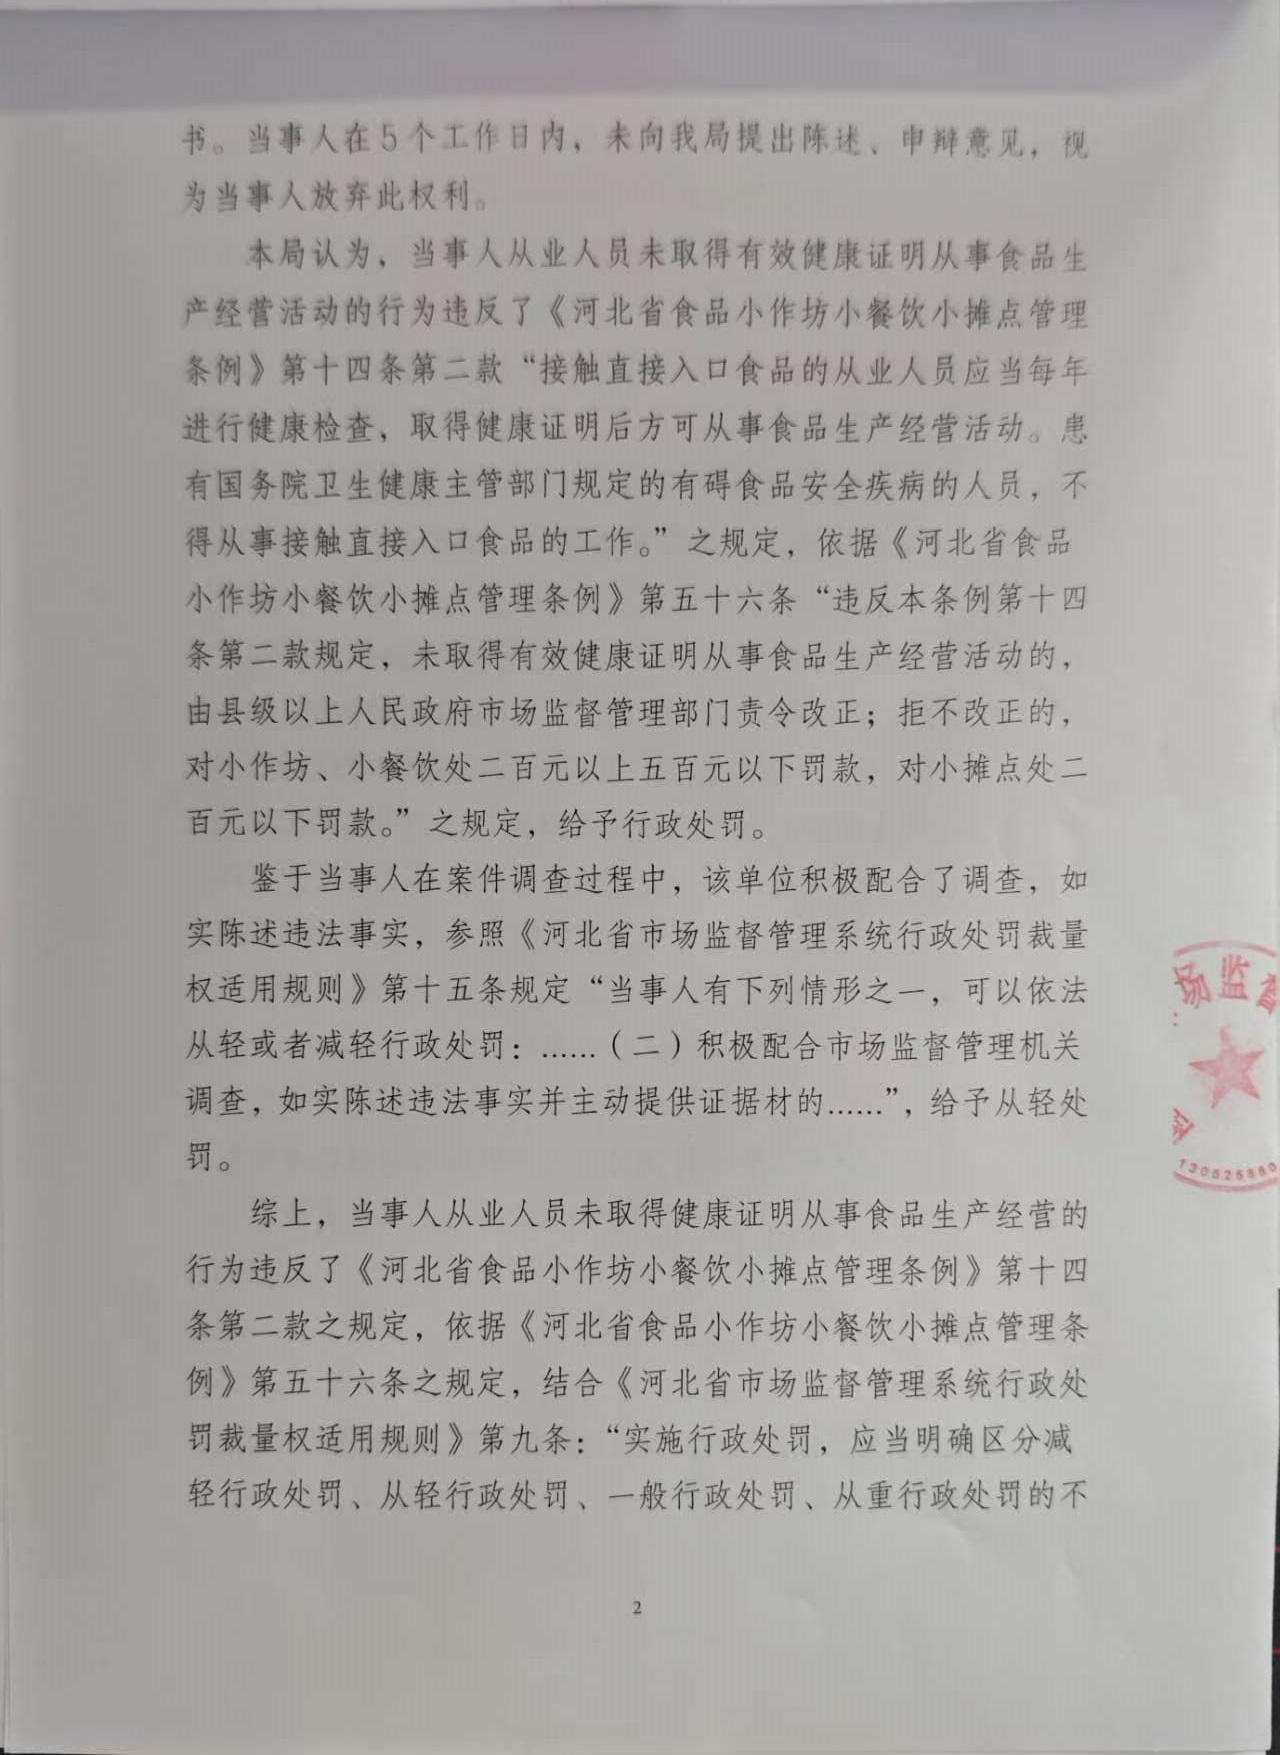 书。当事人在5个工作日内，未向我局提出陈述、申辩意见，视
为当事人放弃此权利。
本局认为，当事人从业人员未取得有效健康证明从事食品生
产经营活动的行为违反了《河北省食品小作坊小餐饮小摊点管理
条例》第十四条第二款“接触直接入口食品的从业人员应当每年
进行健康检查，取得健康证明后方可从事食品生产经营活动。患
有国务院卫生健康主管部门规定的有碍食品安全疾病的人员，不
得从事接触直接入口食品的工作。”之规定，依据《河北省食品
小作坊小餐饮小摊点管理条例》第五十六条“违反本条例第十四
条第二款规定，未取得有效健康证明从事食品生产经营活动的，
由县级以上人民政府市场监督管理部门责令改正；拒不改正的，
对小作坊、小餐饮处二百元以上五百元以下罚款，对小摊点处二
百元以下罚款。”之规定，给予行政处罚。
鉴于当事人在案件调查过程中，该单位积极配合了调查，如
实陈述违法事实，参照《河北省市场监督管理系统行政处罚裁量
权适用规则》第十五条规定“当事人有下列情形之一，可以依法
从轻或者减轻行政处罚：……（二）积极配合市场监督管理机关
调查，如实陈述违法事实并主动提供证据材的……”，给予从轻处
罚。
综上，当事人从业人员未取得健康证明从事食品生产经营的
行为违反了《河北省食品小作坊小餐饮小摊点管理条例》第十四
条第二款之规定，依据《河北省食品小作坊小餐饮小摊点管理条
例》第五十六条之规定，结合《河北省市场监督管理系统行政处
罚裁量权适用规则》第九条：“实施行政处罚，应当明确区分减
轻行政处罚、从轻行政处罚、一般行政处罚、从重行政处罚的不
2
场监